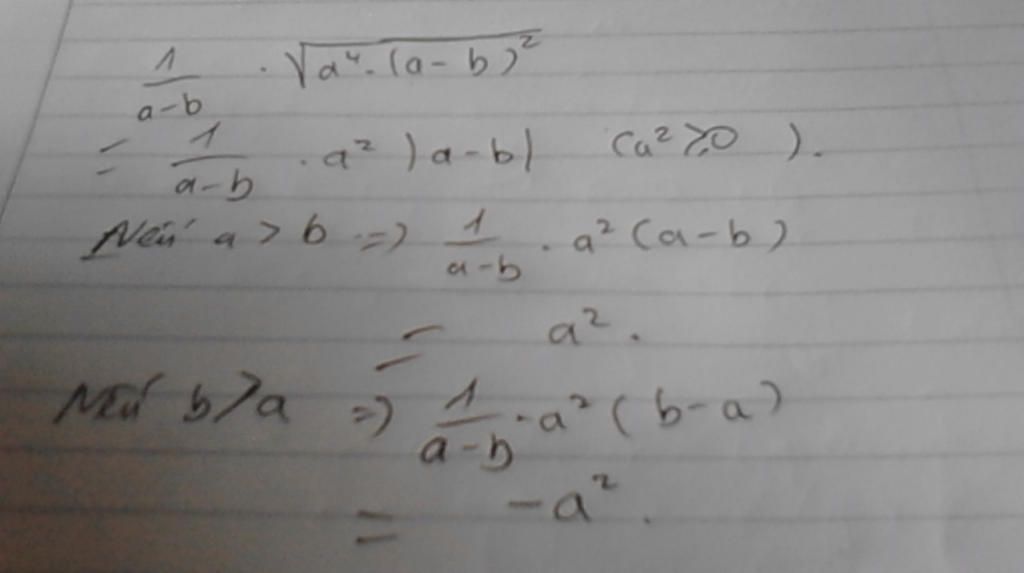 1/(a-b) . √(a⁴.(a-b)²)
= 1/(a-b) . a² |a-b| (a² ≥ 0 ).
Nếu a > b => 1/(a-b) . a² (a-b)
= a².
Nếu b > a => 1/(a-b) . a² (b-a)
= -a².